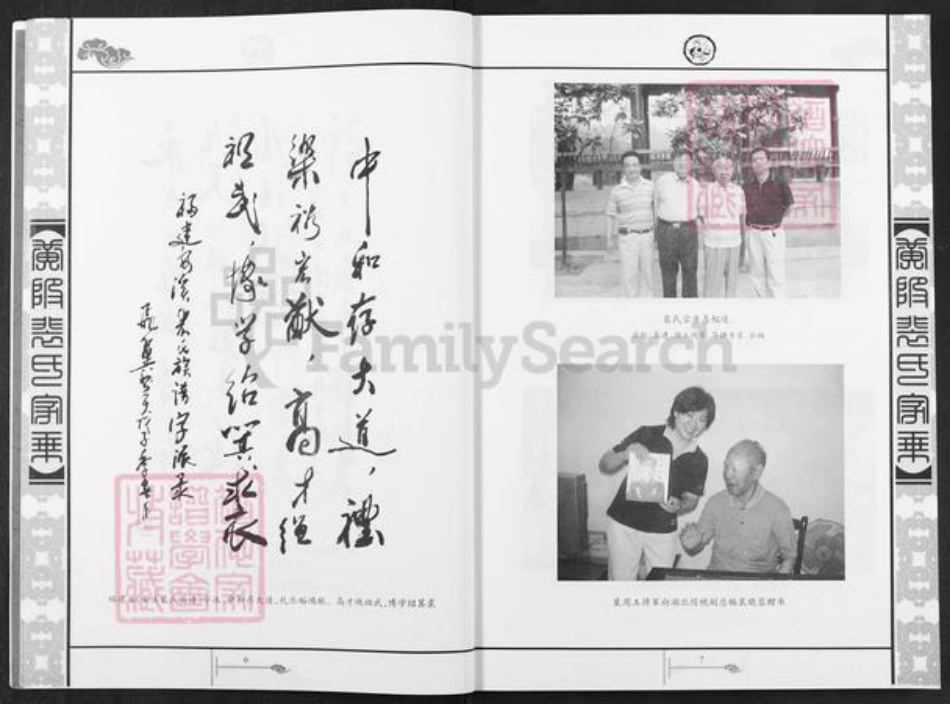 黄陂裴氏家乘
中和存大道，禮
樂裕宏猷，高才繩
祖武，博学绍箕裘
福建安溪裴氏族谱字派录
中和存大道，礼乐裕鸿猷。高才绳祖武，博学绍箕裘
譜學會
特藏
6
FamilySearch
裴氏宗亲喜相逢。
裴周玉将军向湖北谱统副总编裴晓蓉赠书
7
黄陂裴氏家乘